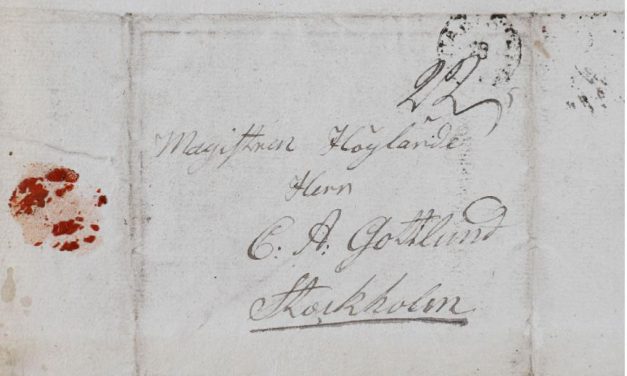 22
Magistren Höglärde
Herr
C. A. Gottlund
Stockholm